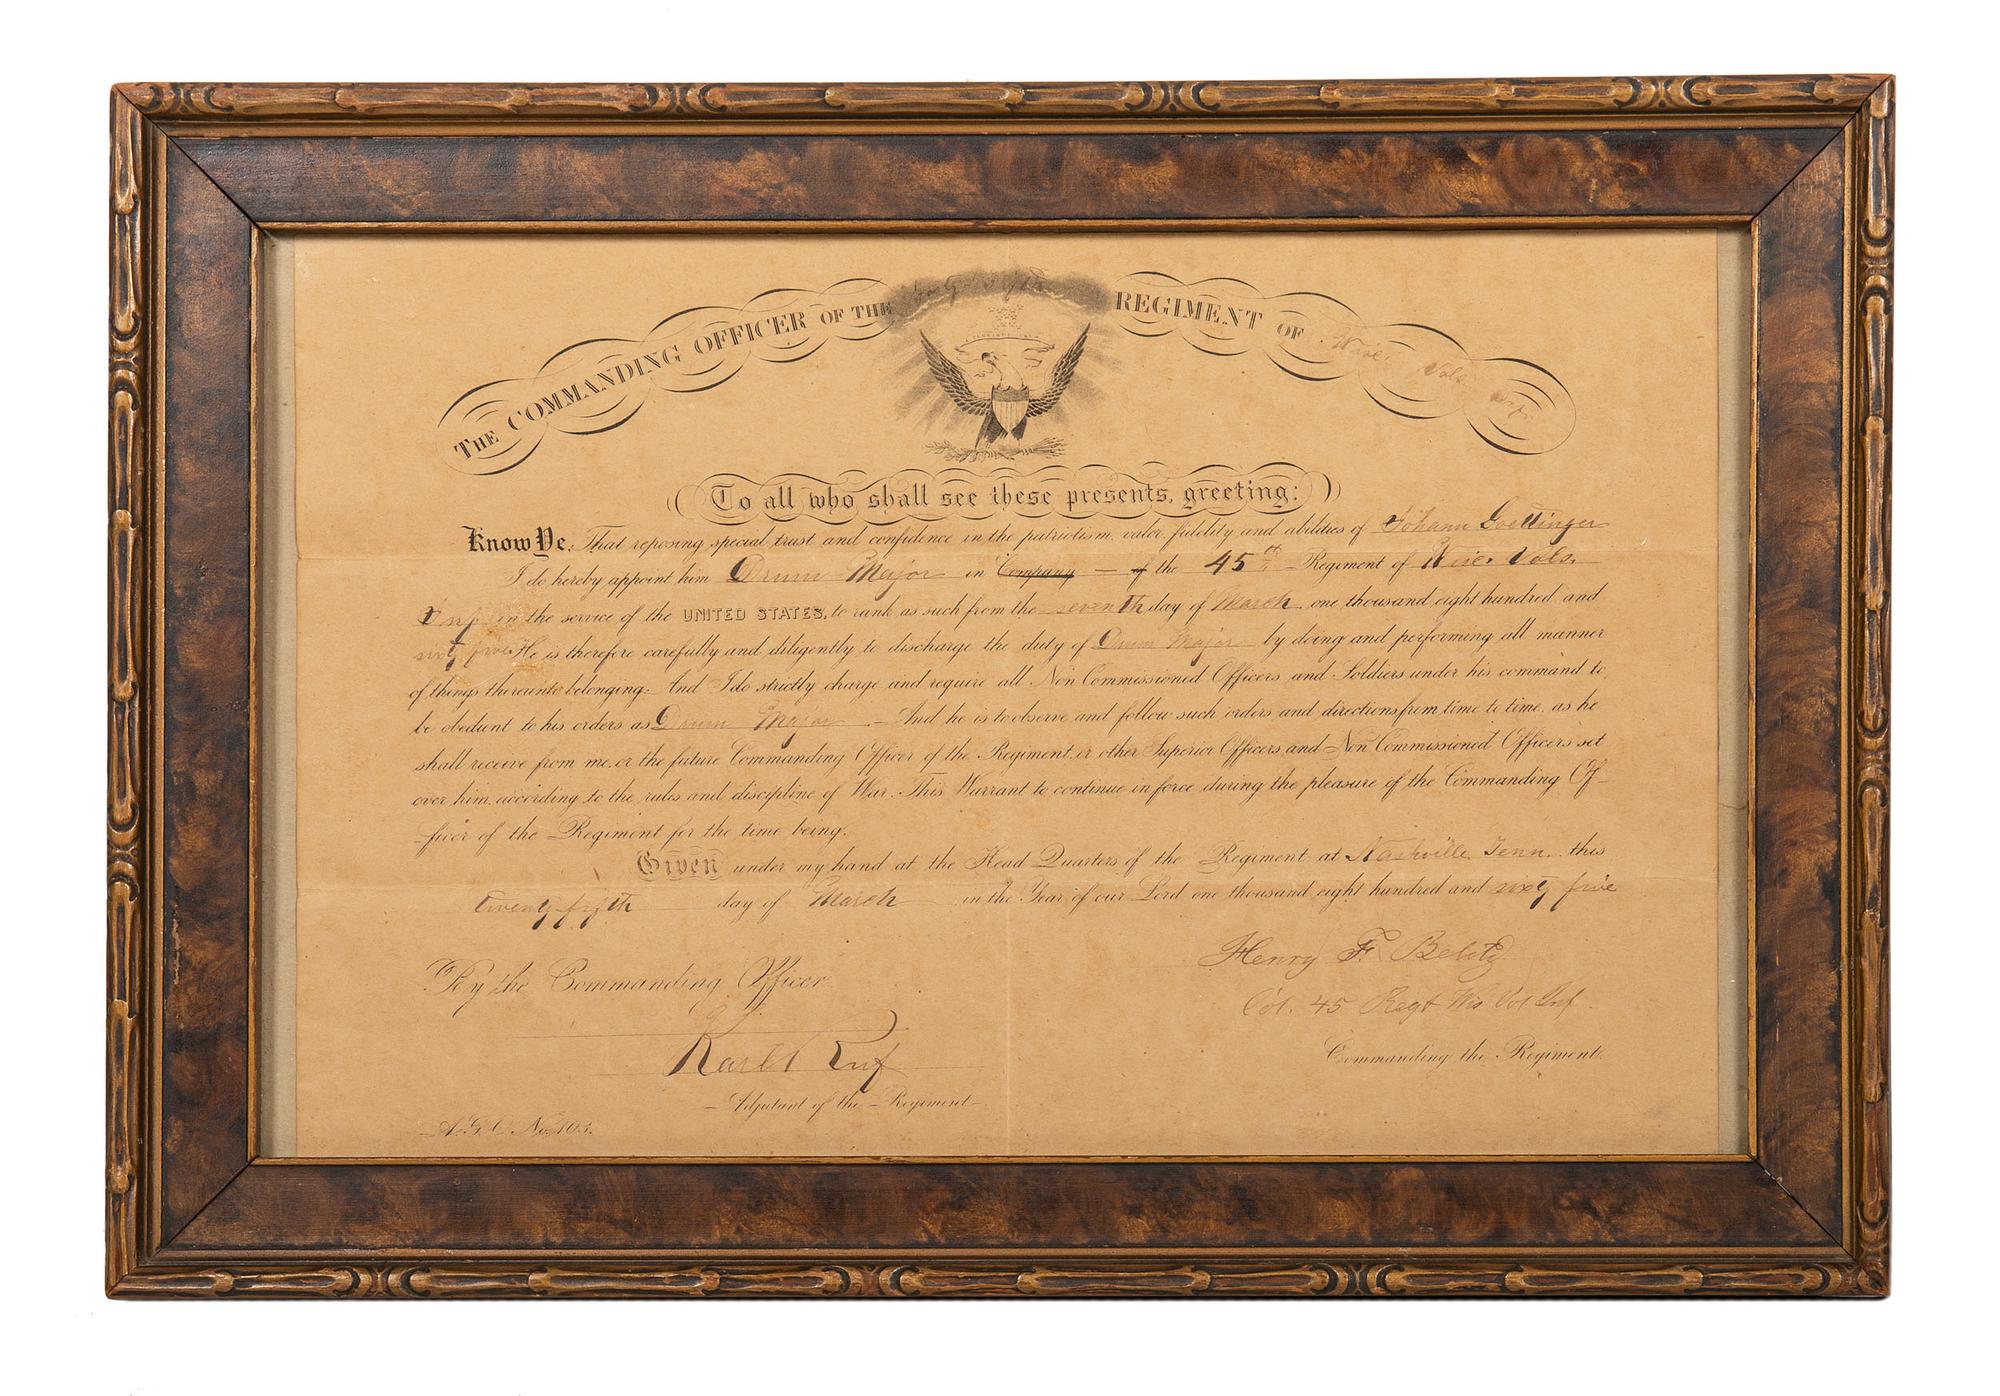 THE COMMANDING OFFICER OF THE Forty-Fifth REGIMENT OF Wisc. Vols. Infr.
To all who shall see these presents, greeting:
Know Ye, That reposing special trust and confidence in the patriotism, valor, fidelity and abilities of Johann Goettinger
I do hereby appoint him Drum Major in Company — of the 45th Regiment of Wisc. Vols.
Inf in the service of the UNITED STATES, to rank as such from the seventh day of March one thousand eight hundred and
sixty five He is therefore carefully and diligently to discharge the duty of Drum Major by doing and performing all manner
of things thereunto belonging. And I do strictly charge and require all Non Commissioned Officers and Soldiers under his command to
be obedient to his orders as Drum Major. And he is to observe and follow such orders and directions from time to time, as he
shall receive from me, or the future Commanding Officer of the Regiment, or other Superior Officers and Non Commissioned Officers set
over him, according to the rules and discipline of War. This Warrant to continue in force during the pleasure of the Commanding Of-
ficer of the Regiment for the time being.
Given under my hand at the Head Quarters of the Regiment at Nashville Tenn. this
twenty fifth day of March in the Year of our Lord one thousand eight hundred and sixty five
Henry F. Belitz
By the Commanding Officer
Col. 45 Regt Wis Vol Inf
Karl Ruf
Commanding the Regiment.
Adjutant of the Regiment
A.G.O. No. 103.